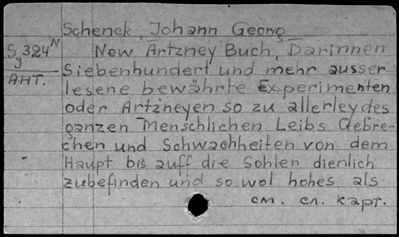 Schenck, Johann Georg
S 324 N New Artzney Buch, Darinnen
g Siebenhundert und mehr ausser
AHT. lesene bewährte Experimenten
oder Artzneyen so zu allerley des
ganzen Menschlichen Leibs Gebre-
chen und Schwachheiten von dem
Haupt bis auff die Sohlen dienlich
zubefinden und so wol hohes, als
см. сл. карт.